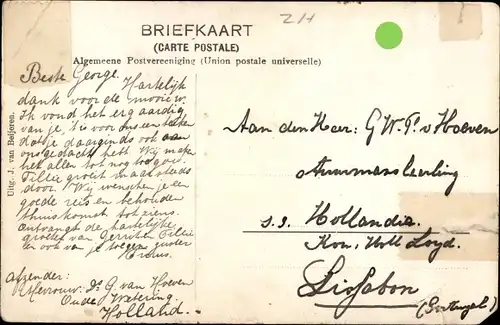 24
BRIEFKAART
(CARTE POSTALE)
Algemeene Postvereeniging (Union postale universelle)
Uitg. J. van Beijeren.
Beste George. Hartelijk
dank voor de mooie
Ik vond het erg aardig
van je,
dat je daarginds ook aan
ons gedacht hebt. Wij maken
het allen tot nog toe goed.
Tillie groeit
door. Wij wenschen je een
goede reis en behouden
thuiskomst
Ontvangt de hartelijke
groeten van Gerritje Tillie
en ook van je
Afzender:
Mevrouw: De G. van Hoeven
Oude Wetering.
Holland.
Aan den Heer: G W. P. v Hoeven
s.s. Hollandia.
Kon. Holl Lloyd.
Lissabon
(Portugal)